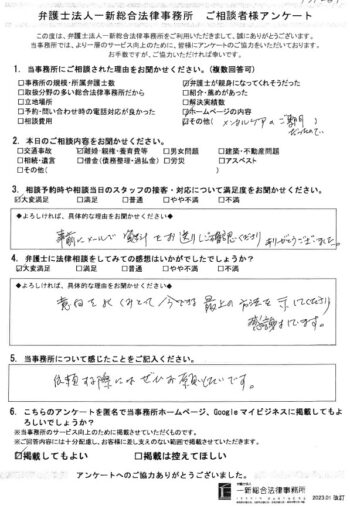 弁護士法人一新総合法律事務所　ご相談者様アンケート
この度は、弁護士法人一新総合法律事務所をご利用いただきまして、誠にありがとうございます。
当事務所では、より一層のサービス向上のために、皆様にアンケートのご協力をいただいております。
お手数ですが、ご協力いただければ幸いです。
1. 当事務所にご相談された理由をお聞かせください。(複数回答可)
□事務所の規模・所属弁護士数　☑弁護士が親身になってくれそうだった
□取扱分野の多い総合法律事務所だから　□紹介・薦めがあった
□立地場所　□解決実績数
□予約・問い合わせ時の電話対応が良かった　☑ホームページの内容
□相談費用　☑その他(メンタルケアの
2. 本日のご相談内容をお聞かせください。
□交通事故　☑離婚・親権・養育費等　□男女問題　□建築・不動産問題
□相続・遺言　□借金(債務整理・過払金)　□労災　□アスベスト
□その他(　)
3. 相談予約時や相談当日のスタッフの接客・対応について満足度をお聞かせください。
☑大変満足　□満足　□普通　□やや不満　□不満
◆よろしければ、具体的な理由をお聞かせください◆
事前にメールで資料をお送りしご確認くださりありがとうございました。
4. 弁護士に法律相談をしてみての感想はいかがでしたでしょうか?
☑大変満足　□満足　□普通　□やや不満　□不満
◆よろしければ、具体的な理由をお聞かせください◆
意向をくみとって今できる最上の方法を示してくださり
感謝しています。
5. 当事務所について感じたことをご記入ください。
依頼する際にはぜひお願いしたいです。
6. こちらのアンケートを匿名で当事務所ホームページ、Googleマイビジネスに掲載してもよ
ろしいでしょうか?
※当事務所のサービス向上のために掲載させていただくものです。
※ご回答内容には十分配慮し、お客様に差し支えのない範囲で掲載させていただきます。
☑掲載してもよい　□掲載は控えてほしい
アンケートへのご協力ありがとうございました。
弁護士法人
一新総合法律事務所
2023.01 改訂